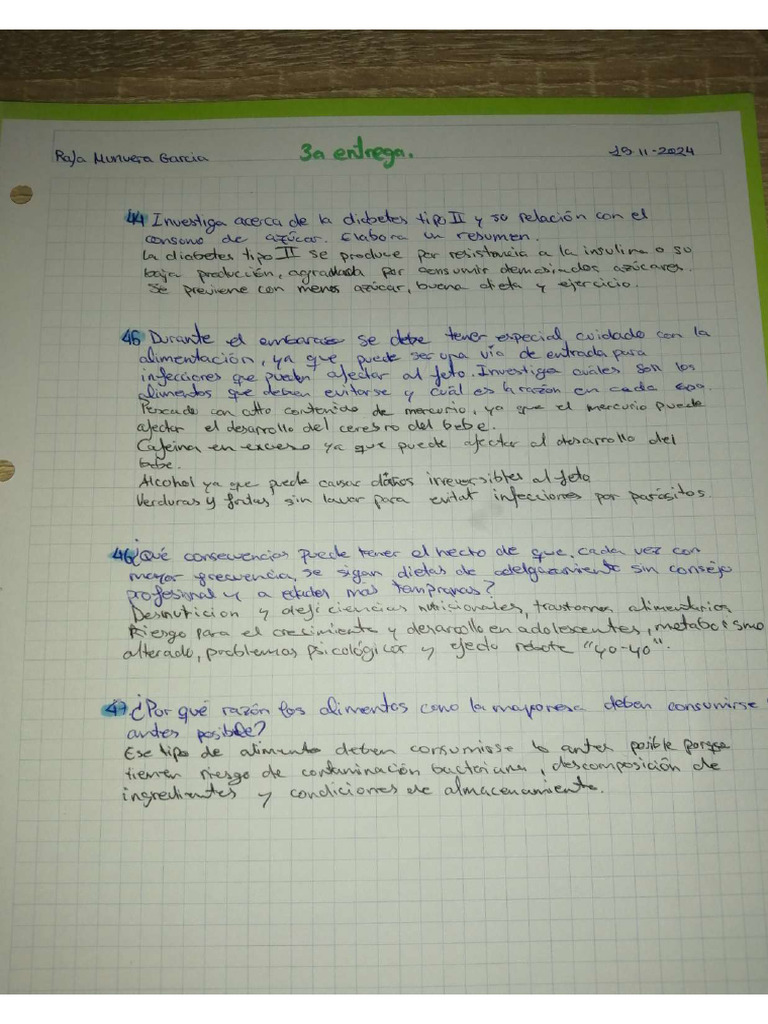 Rafa Munuera Garcia 3a entrega. 19 11-2024
44 Investiga acerca de la diabetes tipo II y su relación con el
consumo de azúcar. Elabora un resumen.
La diabetes tipo II se produce por resistencia a la insulina o su
baja producción, agradada por consumir demasiados azúcares.
Se previene con menos azúcar, buena dieta y ejercicio.
45 Durante el embarazo se debe tener especial cuidado con la
alimentación, ya que puede ser una vía de entrada para
infecciones que pueden afectar al feto. Investiga cuales son los
alimentos que deben evitarse y cuál es la razón en cada caso.
Pescado con alto contenido de mercurio, ya que el mercurio puede
afectar el desarrollo del cerebro del bebe.
Cafeina en exceso ya que puede afectar al desarrollo del
bebe.
Alcohol ya que puede causar daños irreversibles al feto
Verduras y frutas sin lavar para evitat infecciones por parásitos.
46 ¿Qué consecuencias puede tener el hecto de que, cada vez con
mayor frecuencia, se sigan dietas de adelgazamiento sin consejo
profesional y a edades mas tempranas?
Desnutricion y deficiencias nutricionales, trastornos alimentarios
Riesgo para el crecimiento y desarollo en adolescentes, metabolismo
alterado, problemas psicológicos y efecto rebote "yo-yo".
47 ¿Por qué razón los alimentos como la mayonesa deben consumirse
antes posible?
Ese tipo de alimento deben consumirse lo antes posible porque
tienen riesgo de contaminación bacteriana, descomposición de
ingredientes y condiciones de almacenamiento.